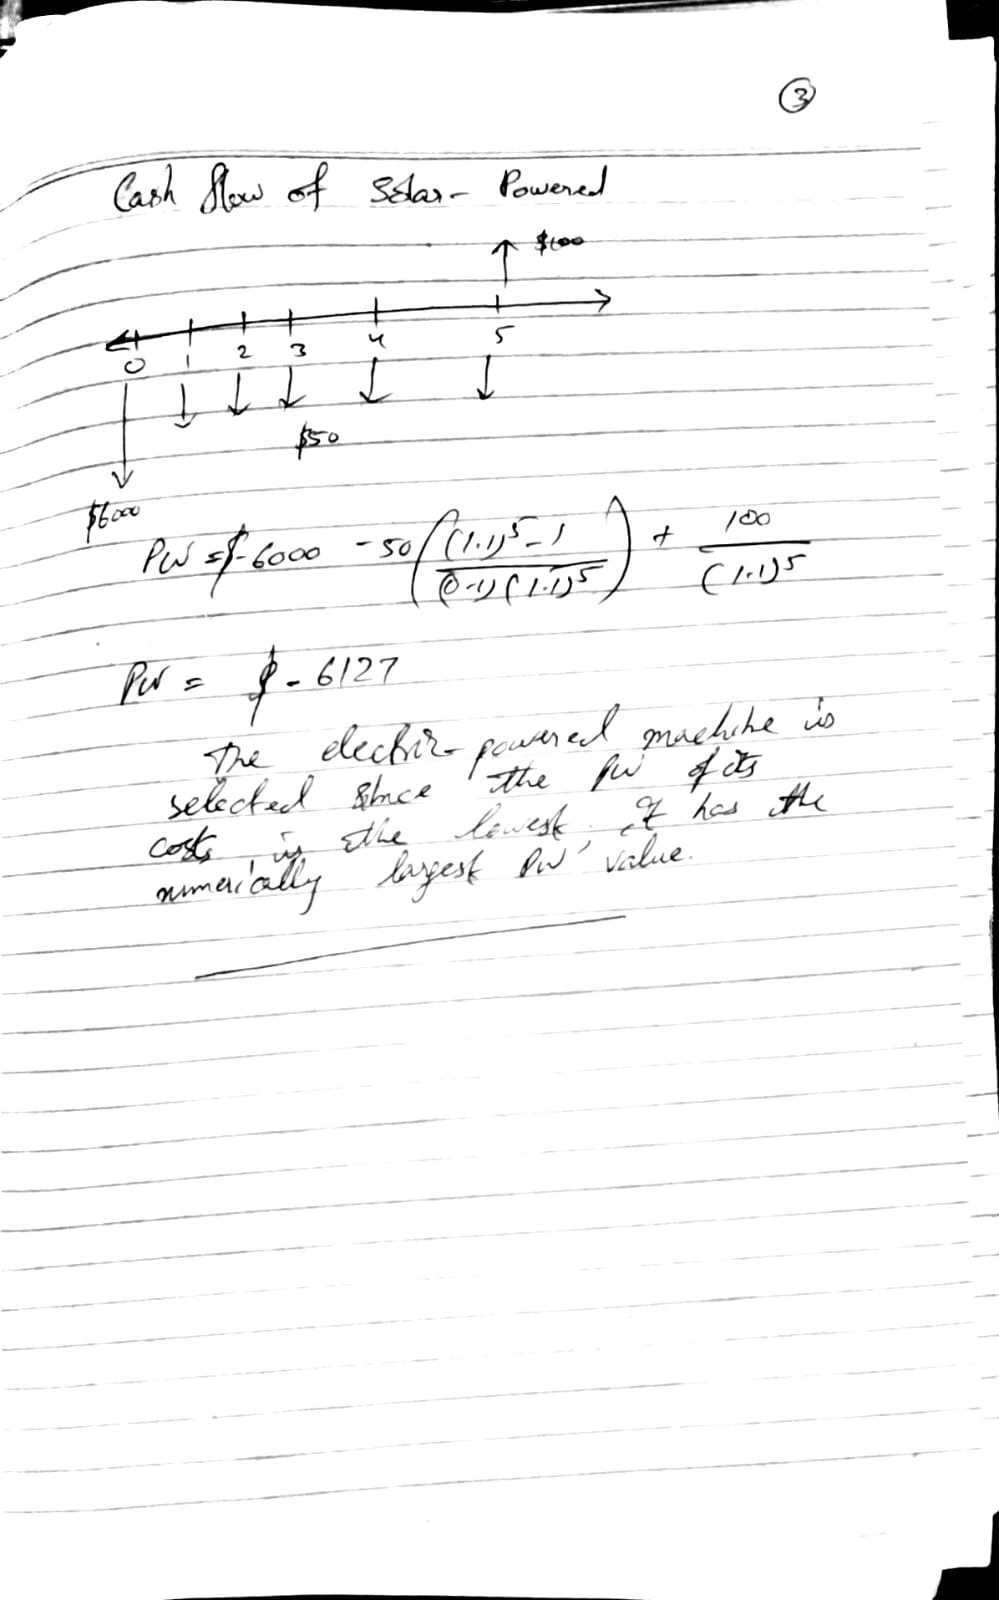 3
Cash flow of Solar-Powered
$100
0 1 2 3 4 5
$50
$6000
PW = $-6000 - 50 ( ((1.1)^5 - 1) / ((0.1)(1.1)^5) ) + 100 / (1.1)^5
PW = $-6127
The electric-powered machine is
selected since the PW of its
costs is the lowest. It has the
numerically largest PW value.